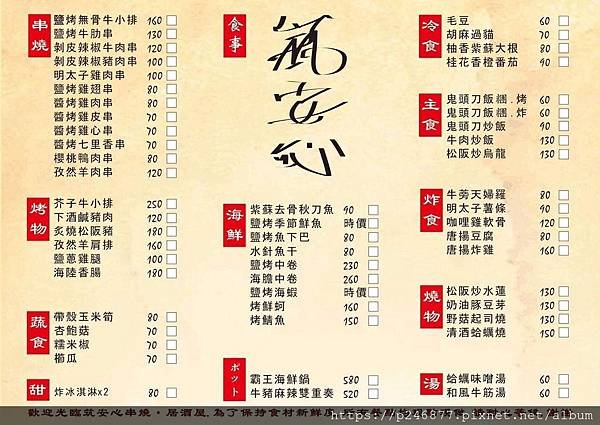 串燒
鹽烤無骨牛小排 160
鹽烤牛肋串 130
剝皮辣椒牛肉串 130
剝皮辣椒豬肉串 100
明太子雞肉串 100
鹽烤雞翅串 80
醬烤雞肉串 80
醬烤雞皮串 70
醬烤雞心串 70
醬烤七里香串 70
櫻桃鴨肉串 80
孜然羊肉串 100
烤物
芥子牛小排 250
下酒鹹豬肉 120
炙燒松阪豬 170
孜然羊肩排 160
鹽蔥雞腿 100
海陸香腸 180
蔬食
帶殼玉米筍 80
杏鮑菇 70
糯米椒 70
櫛瓜 70
甜
炸冰淇淋x2 80
食事
筑安心
海鮮
紫蘇去骨秋刀魚 90
鹽烤季節鮮魚 時價
鹽烤魚下巴 80
水針魚干 80
鹽烤中卷 230
海膽中卷 260
鹽烤海蝦 時價
烤鮮蚵 160
烤鯖魚 150
ポット
霸王海鮮鍋 580
牛豬麻辣雙重奏 520
冷食
毛豆 60
胡麻過貓 70
柚香紫蘇大根 80
桂花香橙番茄 90
主食
鬼頭刀飯糰.烤 60
鬼頭刀飯糰.炸 60
鬼頭刀炒飯 90
牛肉炒飯 130
松阪炒烏龍 130
炸食
牛蒡天婦羅 80
明太子薯條 90
咖哩雞軟骨 120
唐揚豆腐 80
唐揚炸雞 160
燒物
松阪炒水蓮 130
奶油豚豆芽 130
野菇起司燒 130
清酒蛤蠣燒 150
湯
蛤蠣味噌湯 60
和風牛筋湯 80
歡迎光臨筑安心串燒‧居酒屋,為了保持食材新鮮度
https://p246877.pixnet.net/album